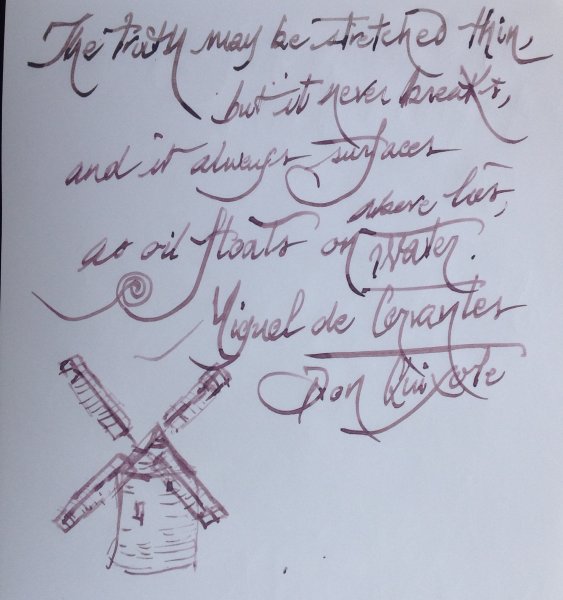 The truth may be stretched thin,
but it never breaks,
and it always surfaces
above lies,
as oil floats on water.
Miguel de Cervantes
Don Quixote